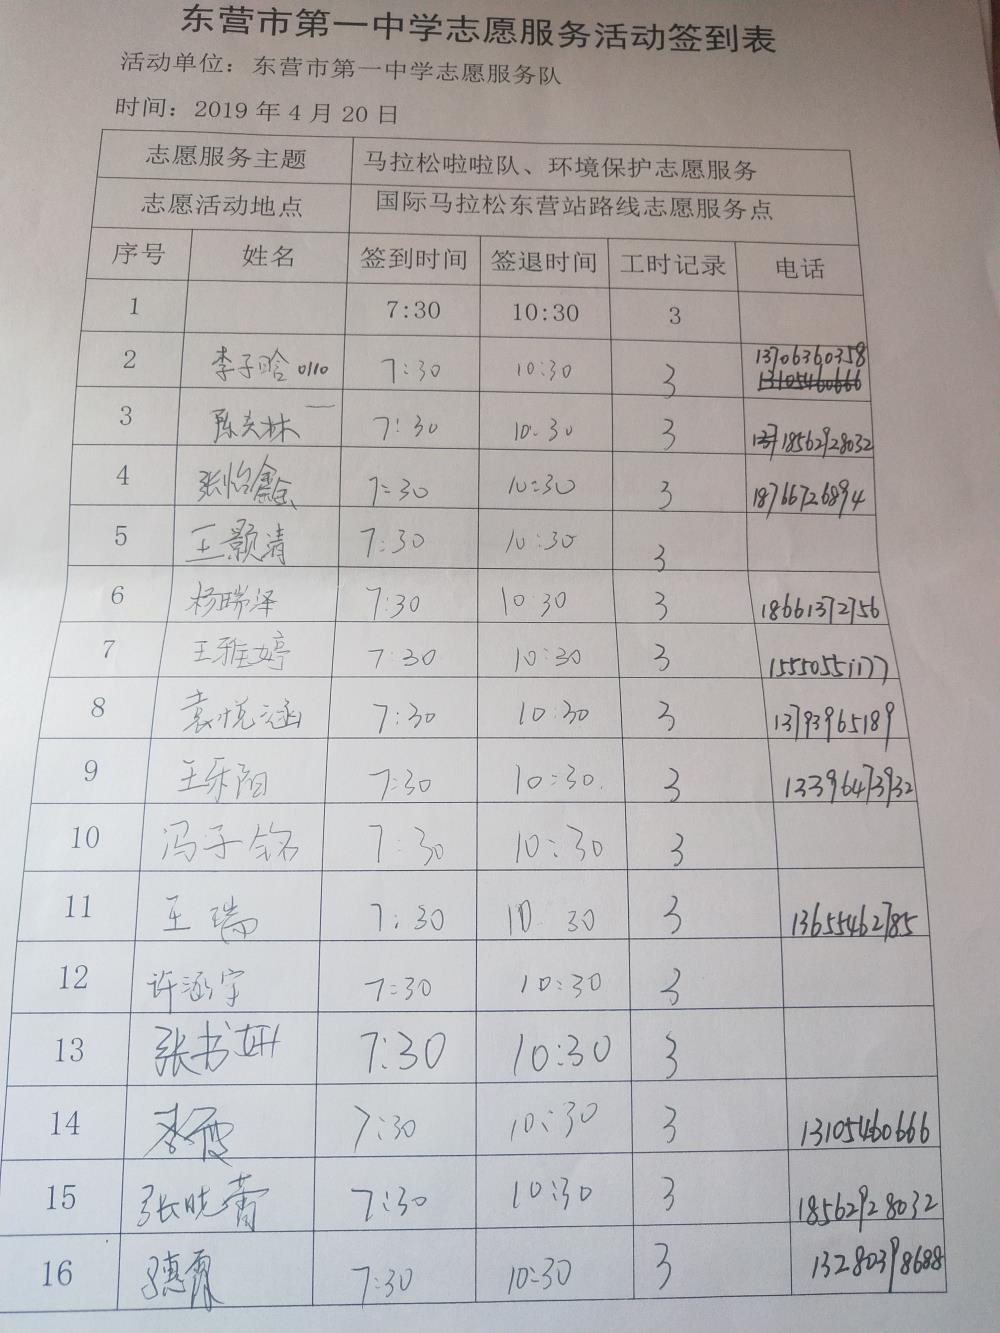 东营市第一中学志愿服务活动签到表
活动单位：东营市第一中学志愿服务队
时间：2019 年 4 月 20 日
志愿服务主题 马拉松啦啦队、环境保护志愿服务
志愿活动地点 国际马拉松东营站路线志愿服务点
序号 姓名 签到时间 签退时间 工时记录 电话
1 7:30 10:30 3
2 李子晗 0110 7:30 10:30 3 13706360358
13105460666
3 7:30 10:30 3 18562928032
4 张怡鑫 7:30 10:30 3 18766726894
5 王颢清 7:30 10:30 3
6 杨瑞泽 7:30 10:30 3 18661372756
7 王雅婷 7:30 10:30 3 15550551177
8 袁悦涵 7:30 10:30 3 13793965189
9 王乐阳 7:30 10:30 3 13396473932
10 冯子铭 7:30 10:30 3
11 王瑞 7:30 10:30 3 13655462785
12 许涵宇 7:30 10:30 3
13 张书妍 7:30 10:30 3
14 7:30 10:30 3 13105460666
15 张晓蕾 7:30 10:30 3 18562928032
16 7:30 10:30 3 13280398688